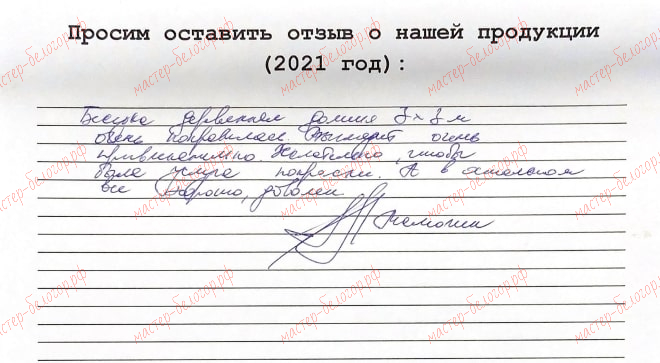 Просим оставить отзыв о нашей продукции
(2021 год):
Беседка 3 х 3 м
очень понравилась. Выглядит очень
привлекательно. Желательно, чтобы
была услуга покраски. А в остальном
все хорошо, доволен.
мастер-белогор.рф